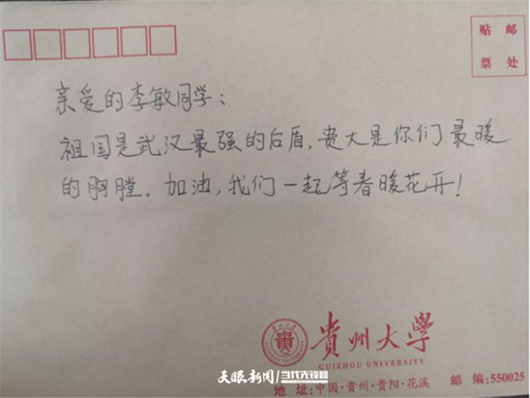 贴 邮
票 处
亲爱的李敏同学：
祖国是武汉最强的后盾，贵大是你们最暖
的胸膛。加油，我们一起等春暖花开！
贵
貴州大學
GUIZHOU UNIVERSITY
地址：中国·贵州·贵阳·花溪 邮编：550025
天眼新闻 当代先锋网